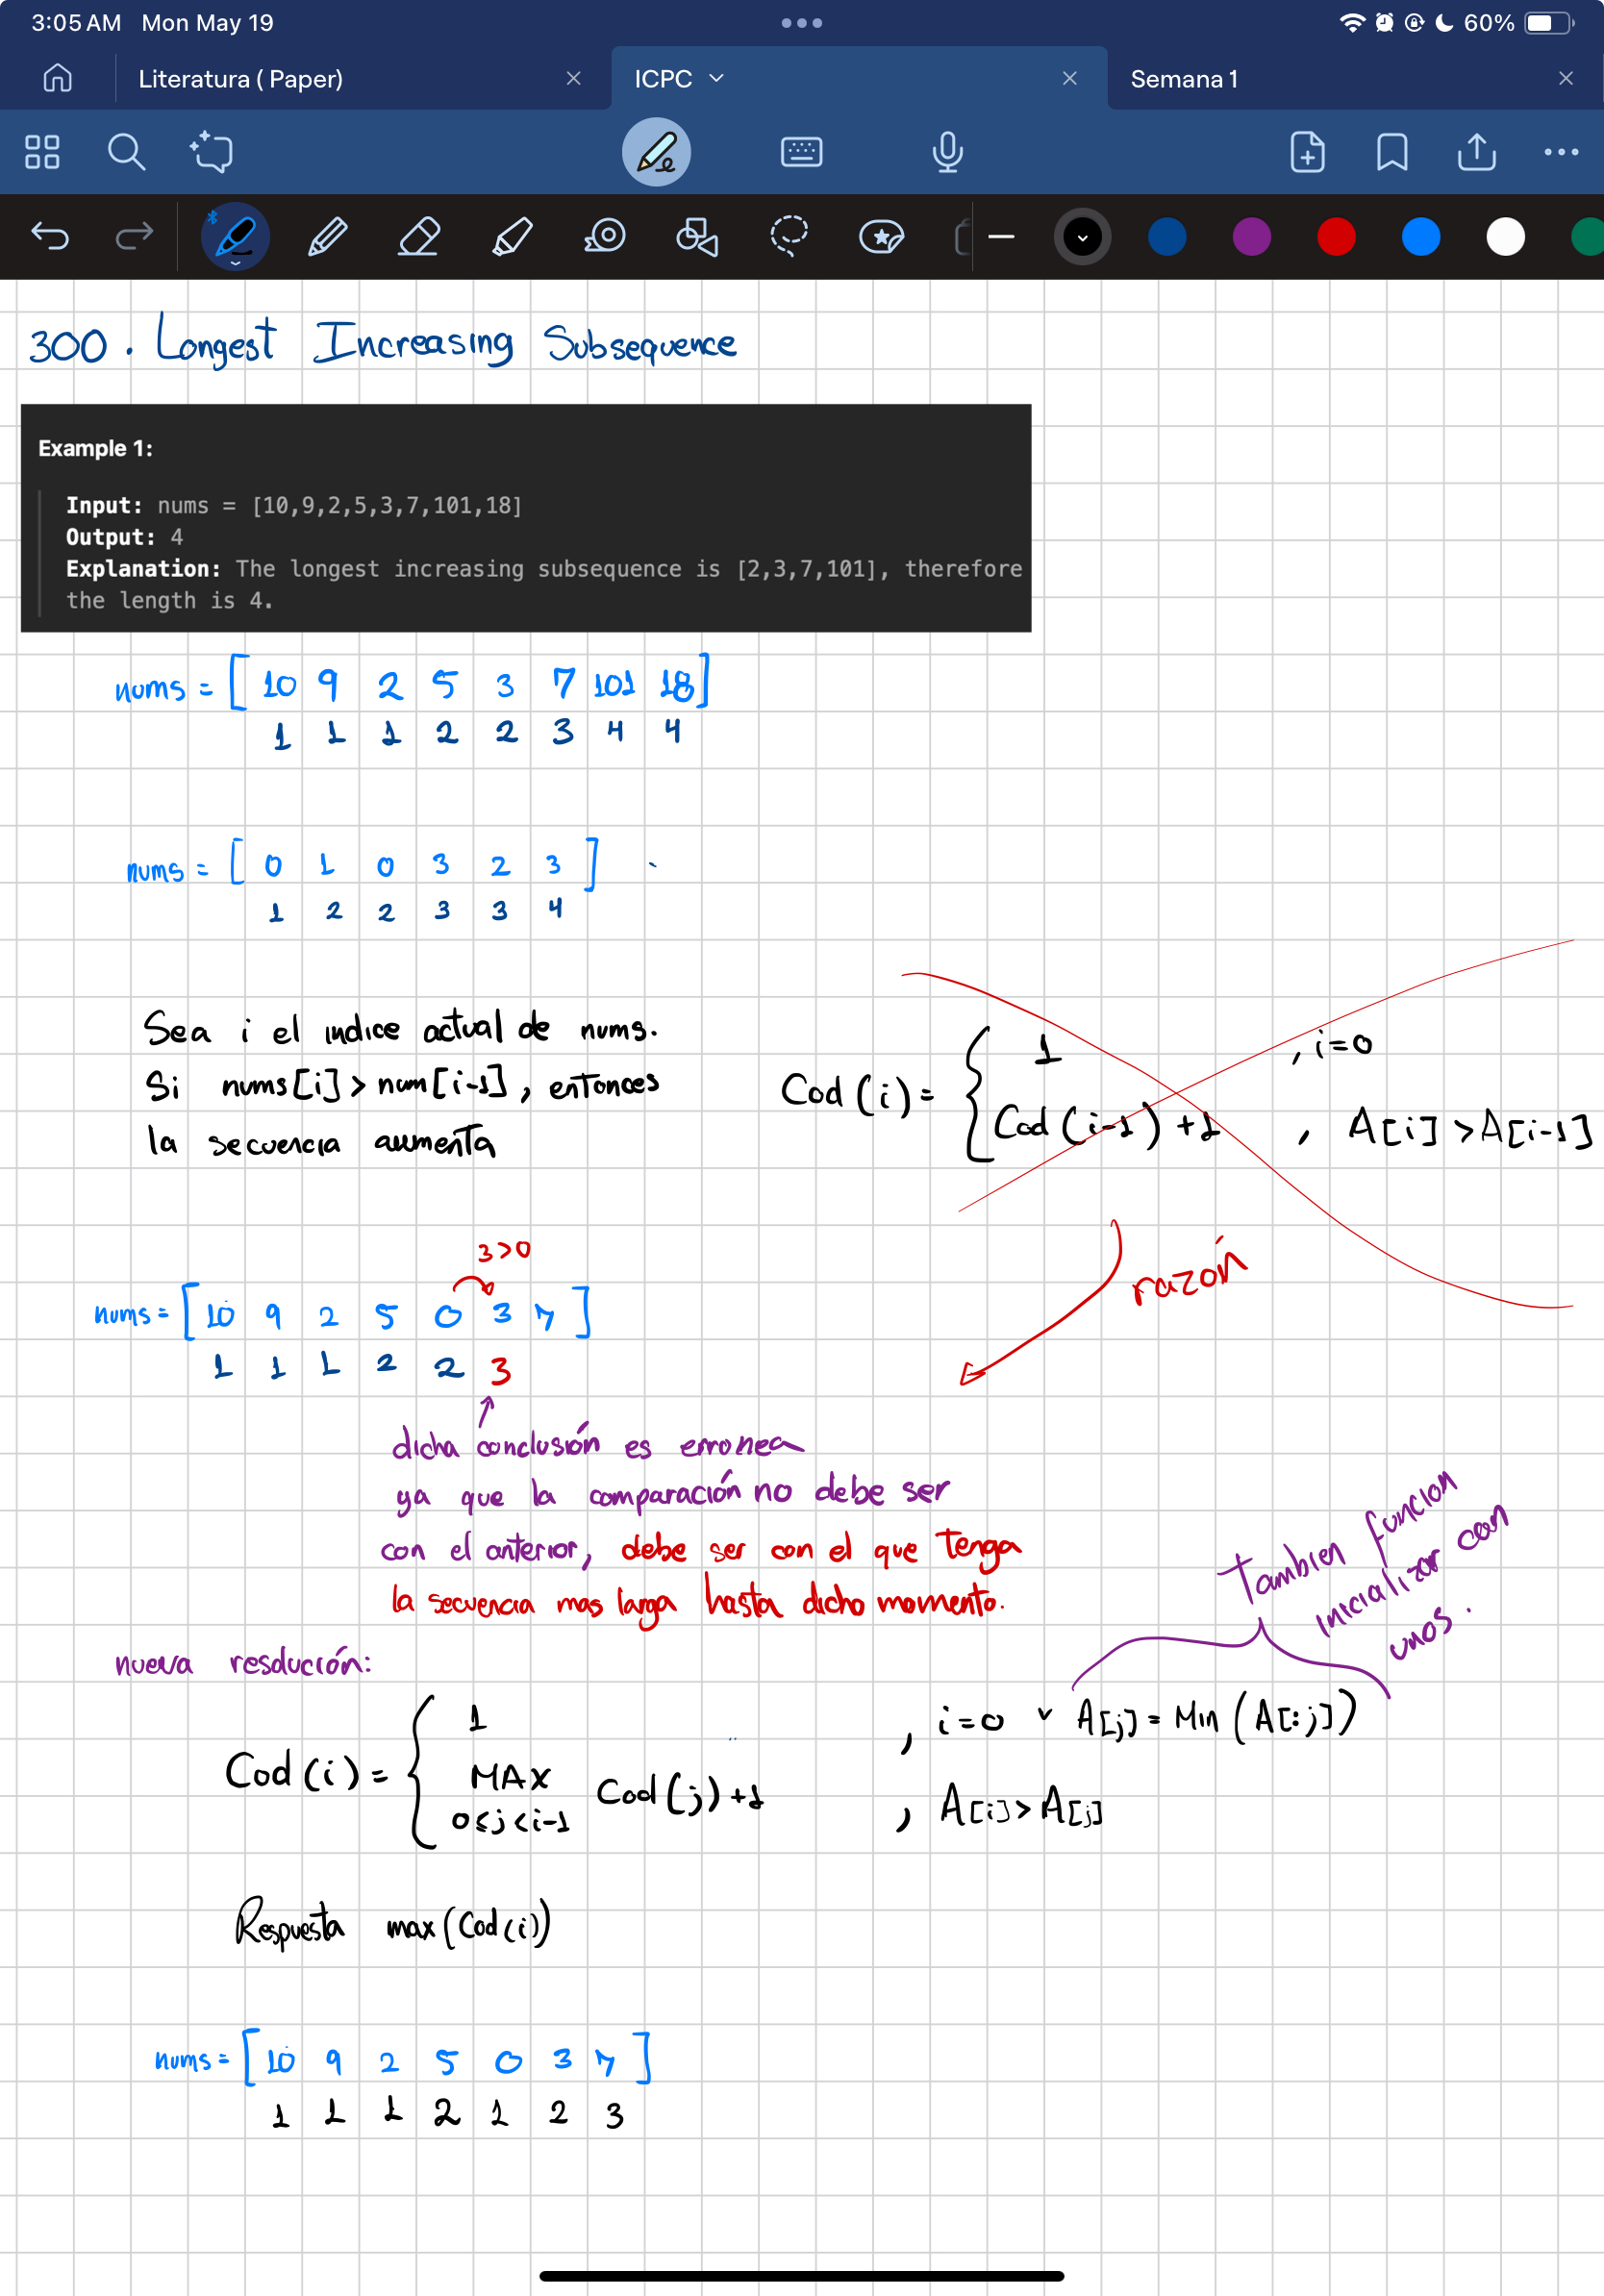 3:05 AM Mon May 19
60%
Literatura ( Paper)
ICPC
Semana 1
300. Longest Increasing Subsequence
Example 1:
Input: nums = [10,9,2,5,3,7,101,18]
Output: 4
Explanation: The longest increasing subsequence is [2,3,7,101], therefore
the length is 4.
nums = [ 10 9 2 5 3 7 101 18 ]
1 1 1 2 2 3 4 4
nums = [ 0 1 0 3 2 3 ]
1 2 2 3 3 4
Sea i el indice actual de nums.
Si nums[i] > num[i-1], entonces
la secuencia aumenta
Cod (i) = { 1 , i=0
Cod (i-1) +1 , A[i] > A[i-1]
razón
3>0
nums = [ 10 9 2 5 0 3 7 ]
1 1 1 2 2 3
dicha conclusión es erronea
ya que la comparación no debe ser
con el anterior, debe ser con el que tenga
la secuencia mas larga hasta dicho momento.
Tambien funcion
inicializar con
unos.
nueva resolución:
Cod (i) = { 1 , i=0 v A[j] = Min (A[:j])
MAX Cod(j) +1 , A[i] > A[j]
0≤j<i-1
Respuesta max(Cod(i))
nums = [ 10 9 2 5 0 3 7 ]
1 1 1 2 1 2 3